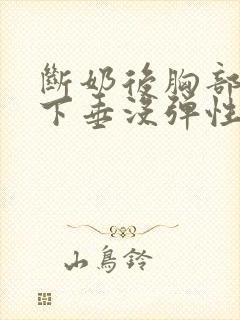 斷奶後胸部
下垂沒彈性
山鳥鈴